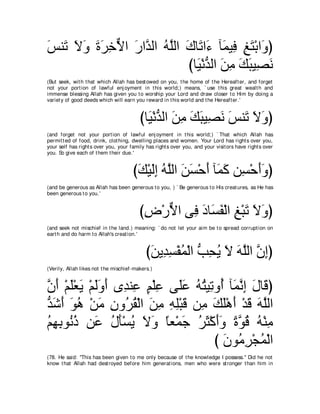 (وَابْتَغِ فِيمَآ ءَاتَاكَ اللَّهُ الدَّارَ الاٌّخِرَةَ وَلاَ تَنسَ
نَصِيبَكَ مِنَ الدُّنْيَا)
(But seek, with that which Allah has bestowed on you, the home of the Hereafter, and forget
not your portion of lawful enjoyment in this world;) means, `use this great wealth and
immense blessing Allah has given you to worship your Lord and draw closer to Him by doing a
variety of good deeds which will earn you reward in this world and the Hereafter.'
(وَلاَ تَنسَ نَصِيبَكَ مِنَ الدُّنْيَا)
(and forget not your portion of lawful enjoyment in this world;) `That which Allah has
permitted of food, drink, clothing, dwelling places and women. Your Lord has rights over you,
your self has rights over you, your family has rights over you, and your visitors have rights over
you. So give each of them their due.'
(وَأَحْسِن كَمَآ أَحْسَنَ اللَّهُ إِلَيْكَ)
(and be generous as Allah has been generous to you, ) `Be generous to His creatures, as He has
been generous to you.'
(وَلاَ تَبْغِ الْفَسَادَ فِى الاٌّرْضِ)
(and seek not mischief in the land.) meaning: `do not let your aim be to spread corruption on
earth and do harm to Allah's creation.'
(إِنَّ اللَّهَ لاَ يُحِبُّ الْمُفْسِدِينَ)
(Verily, Allah likes not the mischief-makers.)
(قَالَ إِنَّمَآ أُوتِيتُهُ عَلَى عِلْمٍ عِندِى أَوَلَمْ يَعْلَمْ أَنَّ
اللَّهَ قَدْ أَهْلَكَ مِن قَبْلِهِ مِنَ الْقُرُونِ مَنْ هُوَ أَشَدُّ
مِنْهُ قُوَّةً وَأَكْثَرُ جَمْعاً وَلاَ يُسْأَلُ عَن ذُنُوبِهِمُ
الْمُجْرِمُونَ )
(78. He said: "This has been given to me only because of the knowledge I possess.'' Did he not
know that Allah had destroyed before him generations, men who were stronger than him in